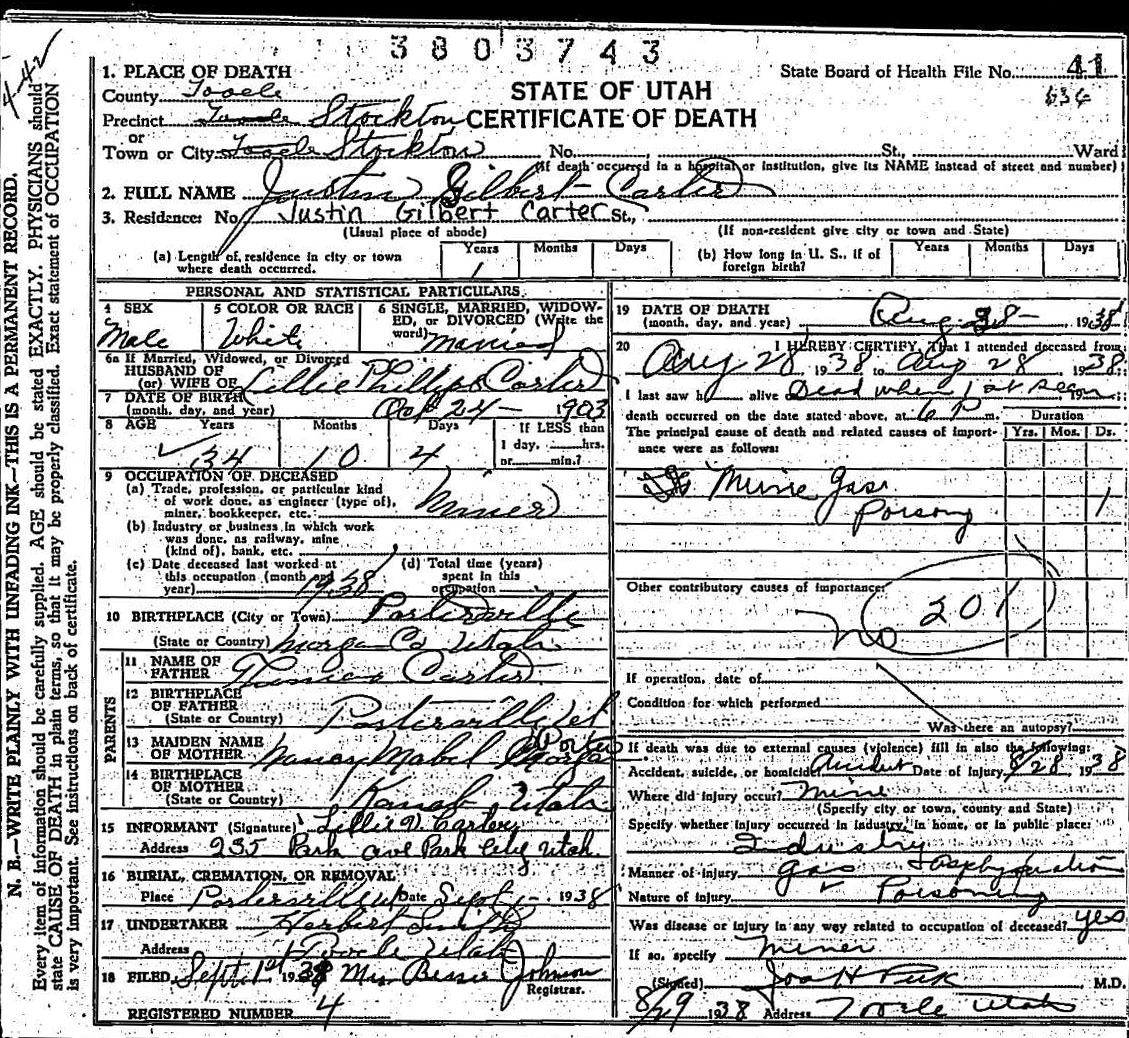 3803743
1. PLACE OF DEATH
State Board of Health File No. 41
County Tooele
STATE OF UTAH
636
Precinct Tooele Stockton
CERTIFICATE OF DEATH
or
Town or City Tooele Stockton No. St., Ward
(If death occurred in a hospital or institution, give its NAME instead of street and number)
2. FULL NAME Justin Gilbert Carter
3. Residence: No. Justin Gilbert Carter St.,
(Usual place of abode)
(If non-resident give city or town and State)
(a) Length of residence in city or town where death occurred.
Years Months Days
1
(b) How long in U. S., if of foreign birth?
Years Months Days
PERSONAL AND STATISTICAL PARTICULARS.
4 SEX
Male
5 COLOR OR RACE
White
6 SINGLE, MARRIED, WIDOWED, or DIVORCED (Write the word)
Married
6a If Married, Widowed, or Divorced
HUSBAND OF
(or) WIFE OF Lillie Phillips Carter
7 DATE OF BIRTH
(month, day, and year) Oct 24 - 1903
8 AGE Years Months Days
34 10 4
If LESS than
1 day, hrs.
or min.?
9 OCCUPATION OF DECEASED
(a) Trade, profession, or particular kind of work done, as engineer (type of), miner, bookkeeper, etc. Miner
(b) Industry or business in which work was done, as railway, mine (kind of), bank, etc.
(c) Date deceased last worked at this occupation (month and year) 1938
(d) Total time (years) spent in this occupation
10 BIRTHPLACE (City or Town) Porterville
(State or Country) Morgan Co Utah
PARENTS
11 NAME OF FATHER Carter
12 BIRTHPLACE OF FATHER
(State or Country) Porterville Ut
13 MAIDEN NAME OF MOTHER Nancy Mabel Porter
14 BIRTHPLACE OF MOTHER
(State or Country) Kanab Utah
15 INFORMANT (Signature) Lillie V. Carter
Address 235 Park ave Park City Utah
16 BURIAL, CREMATION, OR REMOVAL
Place Porterville Date Sept 1 - 1938
17 UNDERTAKER Herbert Smith
Address Tooele Utah
18 FILED Sept 1st 1938 Mrs Bessie Johnson
Registrar.
REGISTERED NUMBER 4
19 DATE OF DEATH
(month, day, and year) Aug 28 - 1938
20 I HEREBY CERTIFY, That I attended deceased from
Aug 28, 1938 to Aug 28, 1938
I last saw h alive Dead when 1st seen, 19
death occurred on the date stated above, at 6 P m.
Duration
The principal cause of death and related causes of importance were as follows:
Yrs. Mos. Ds.
Mine Gas 1
Other contributory causes of importance:
201
no
If operation, date of
Condition for which performed
Was there an autopsy?
If death was due to external causes (violence) fill in also the following:
Accident, suicide, or homicide Accident Date of injury 8/28, 1938
Where did injury occur? Mine
(Specify city or town, county and State)
Specify whether injury occurred in industry, in home, or in public place:
Industry
Manner of injury gas
Nature of injury Poisoning
Was disease or injury in any way related to occupation of deceased? yes
If so, specify Miner
(Signed) Jos H Peck M.D.
8/29 1938 Address Tooele Utah
N. B.—WRITE PLAINLY WITH UNFADING INK—THIS IS A PERMANENT RECORD.
Every item of information should be carefully supplied. AGE should be stated EXACTLY. PHYSICIANS should
state CAUSE OF DEATH in plain terms, so that it may be properly classified. Exact statement of OCCUPATION
is very important. See instructions on back of certificate.